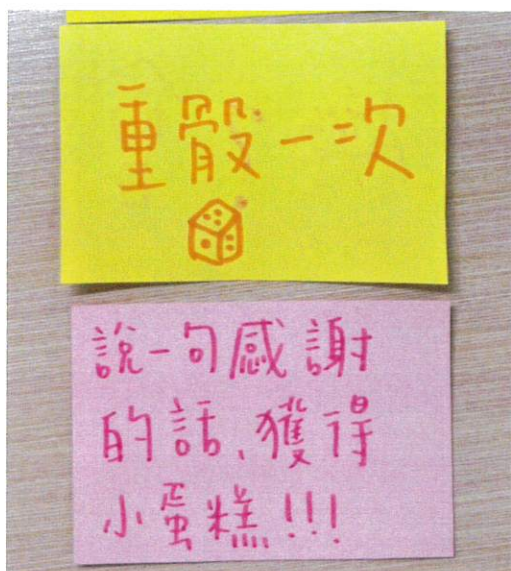 重骰一次
說一句感謝
的話、獲得
小蛋糕!!!